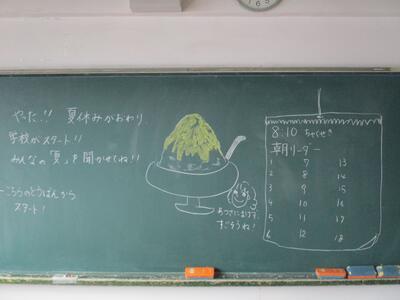 やった!! 夏休みがおわり
学校がスタート!!
みんなの"夏"を聞かせてね!!
スタート!
あつさにまけず、
すごそうね!
8:10 ちゃくせき
朝リーダー
1 7 13
2 8 14
3 9 15
4 10 16
5 11 17
6 12 18